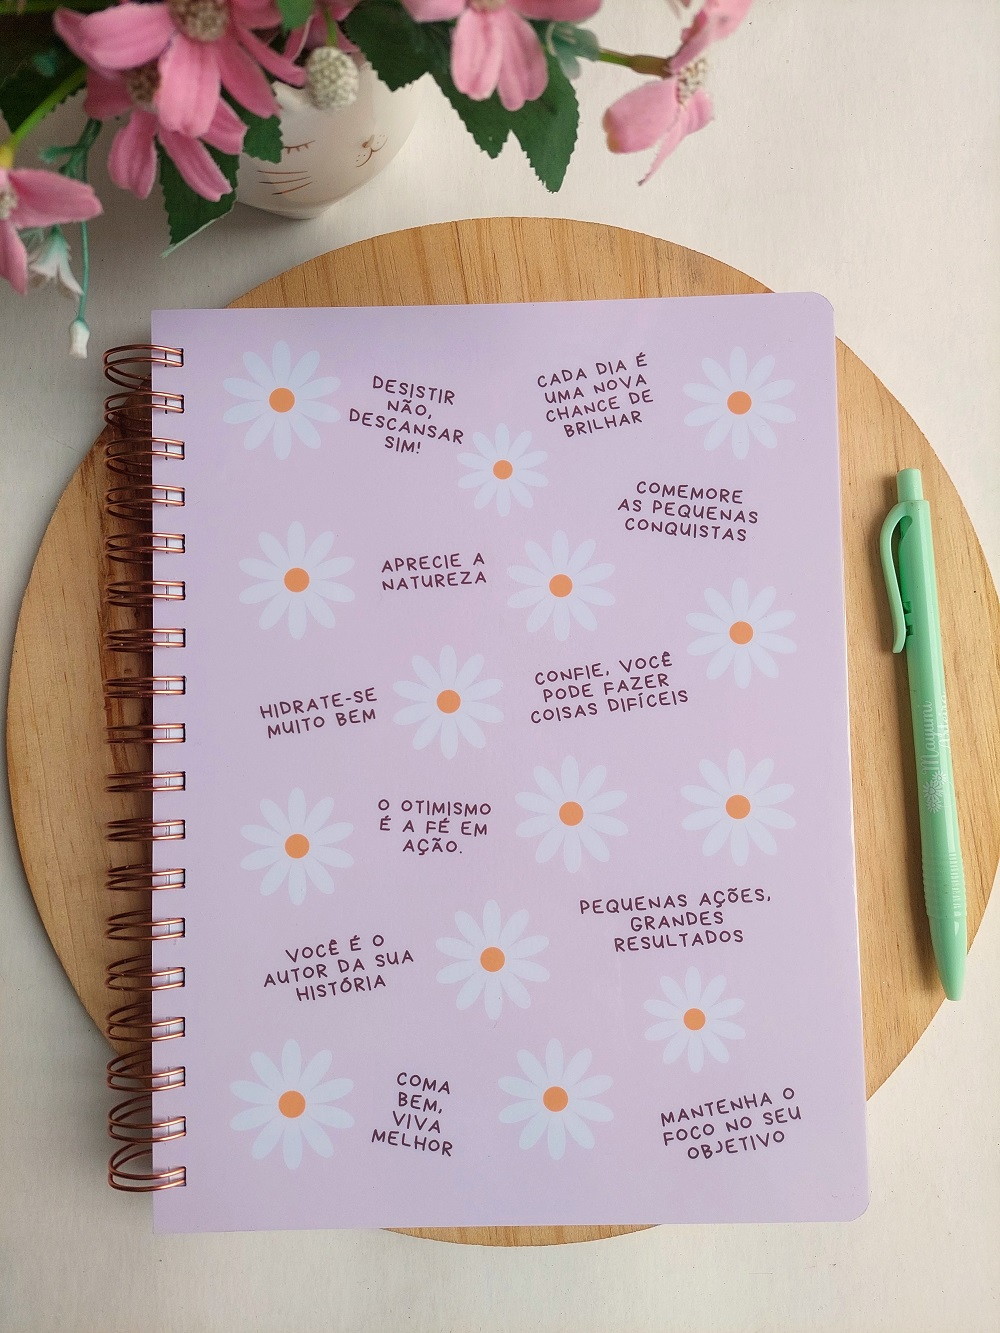 DESISTIR
NÃO,
DESCANSAR
SIM!
CADA DIA É
UMA NOVA
CHANCE DE
BRILHAR
COMEMORE
AS PEQUENAS
CONQUISTAS
APRECIE A
NATUREZA
CONFIE, VOCÊ
PODE FAZER
COISAS DIFÍCEIS
HIDRATE-SE
MUITO BEM
O OTIMISMO
É A FÉ EM
AÇÃO.
PEQUENAS AÇÕES,
GRANDES
RESULTADOS
VOCÊ É O
AUTOR DA SUA
HISTÓRIA
COMA
BEM,
VIVA
MELHOR
MANTENHA O
FOCO NO SEU
OBJETIVO
Mayumi